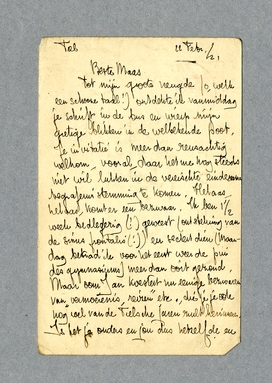 Tiel 11 Febr. /21
Beste Maas
Tot mijn groote vreugde (o, welk
een schoone taal!) ontdekte ik vanmiddag
je schrift in de bus en wierp mijn
gretige blikken in de welbekende goot.
Je invitatie is meer dan reusachtig
welkom, vooral daar het me nog steeds
niet wil lukken in de vereischte eind-examen
stemming te komen. Helaas
helaas, komt er een bezwaar. Ik ben 1 1/2
week bedlegerig (!) geweest (ontsteking van
de sinus frontalis (!)) en sedert dien (Maan-
dag betrad ik voor het eerst weer de
des gymnasiums) meer dan gezond.
Maar oom Jan koestert nu eenige bezwaren
van "vermoeienis, reizen etc.", die je je ook
nog wel van de Tielsche jaren zult herinneren.
Je hebt je ouders en jou dus hetzelfde en